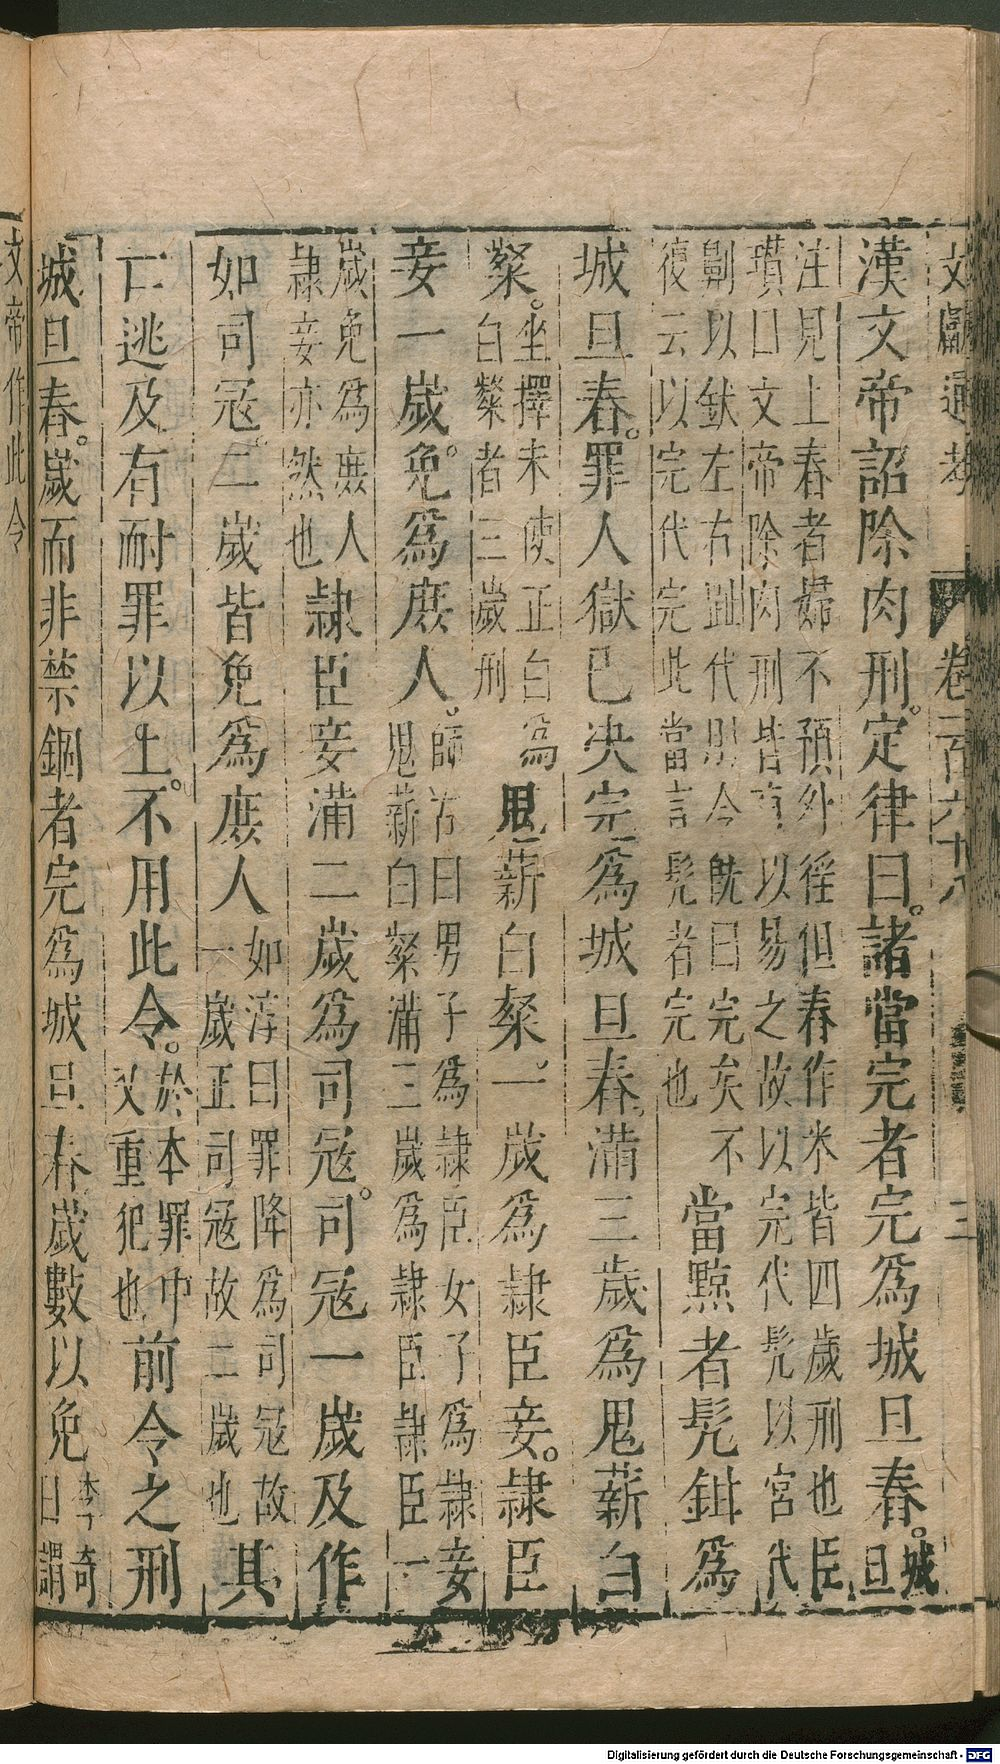 文獻通考 卷一百六十八 三
漢文帝詔除肉刑。定律曰。諸當完者完爲城旦舂。城
旦
注見上舂者婦不預外徭但舂作米皆四歲刑也臣
瓚曰文帝除肉刑皆有以易之故以完代髡以宮代
劓以釱左右趾代刖今旣曰完矣不
復云以完代完此當言髡者完也
當黥者髡鉗爲
城旦舂。罪人獄已決完爲城旦舂。滿三歲爲鬼薪白
粲。
坐擇未使正白爲
白粲者三歲刑
鬼薪白粲。一歲爲隸臣妾。隸臣
妾一歲免。爲庶人。
師古曰男子爲隸臣女子爲隸妾
鬼薪白粲滿三歲爲隸臣隸臣一
歲免爲庶人
隸妾亦然也
隸臣妾滿二歲爲司寇。司寇一歲及作
如司寇。二歲皆免爲庶人
如淳曰罪降爲司寇故
一歲正司寇故二歲也
其
亡逃及有耐罪以上。不用此令。
於本罪中
又重犯也
前令之刑
城旦舂。歲而非禁錮者完爲城旦舂歲數以免
李奇
曰謂
文帝作此令